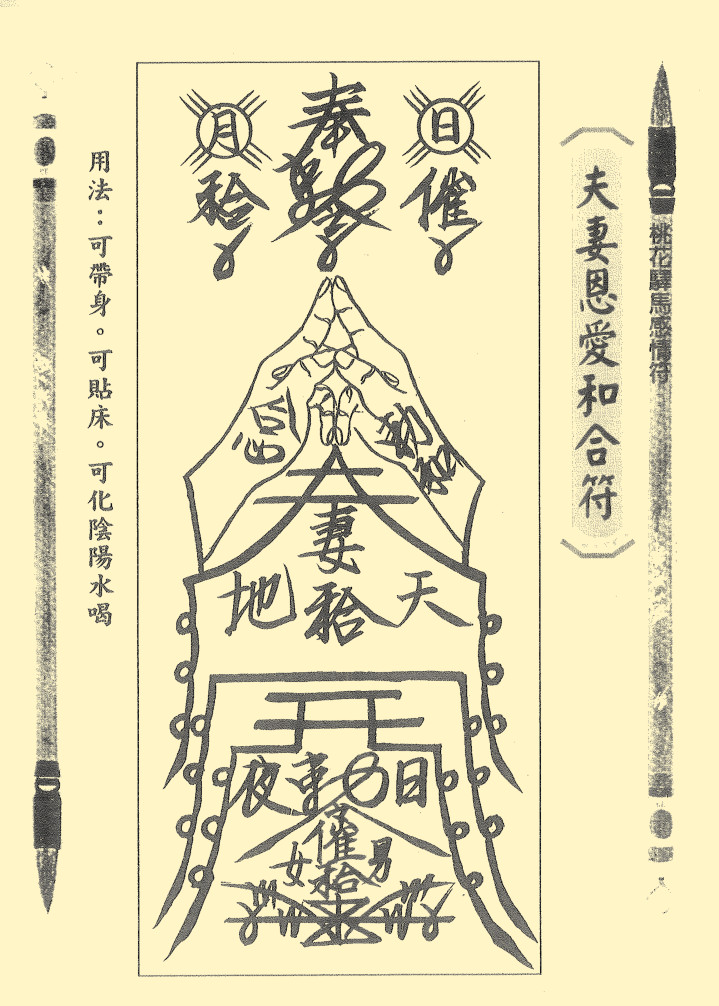 桃花驛馬感情符
夫妻恩愛和合符
日
月
奉
催
地
天
妻
夜
日
催
女
男
用法：可帶身。可貼床。可化陰陽水喝